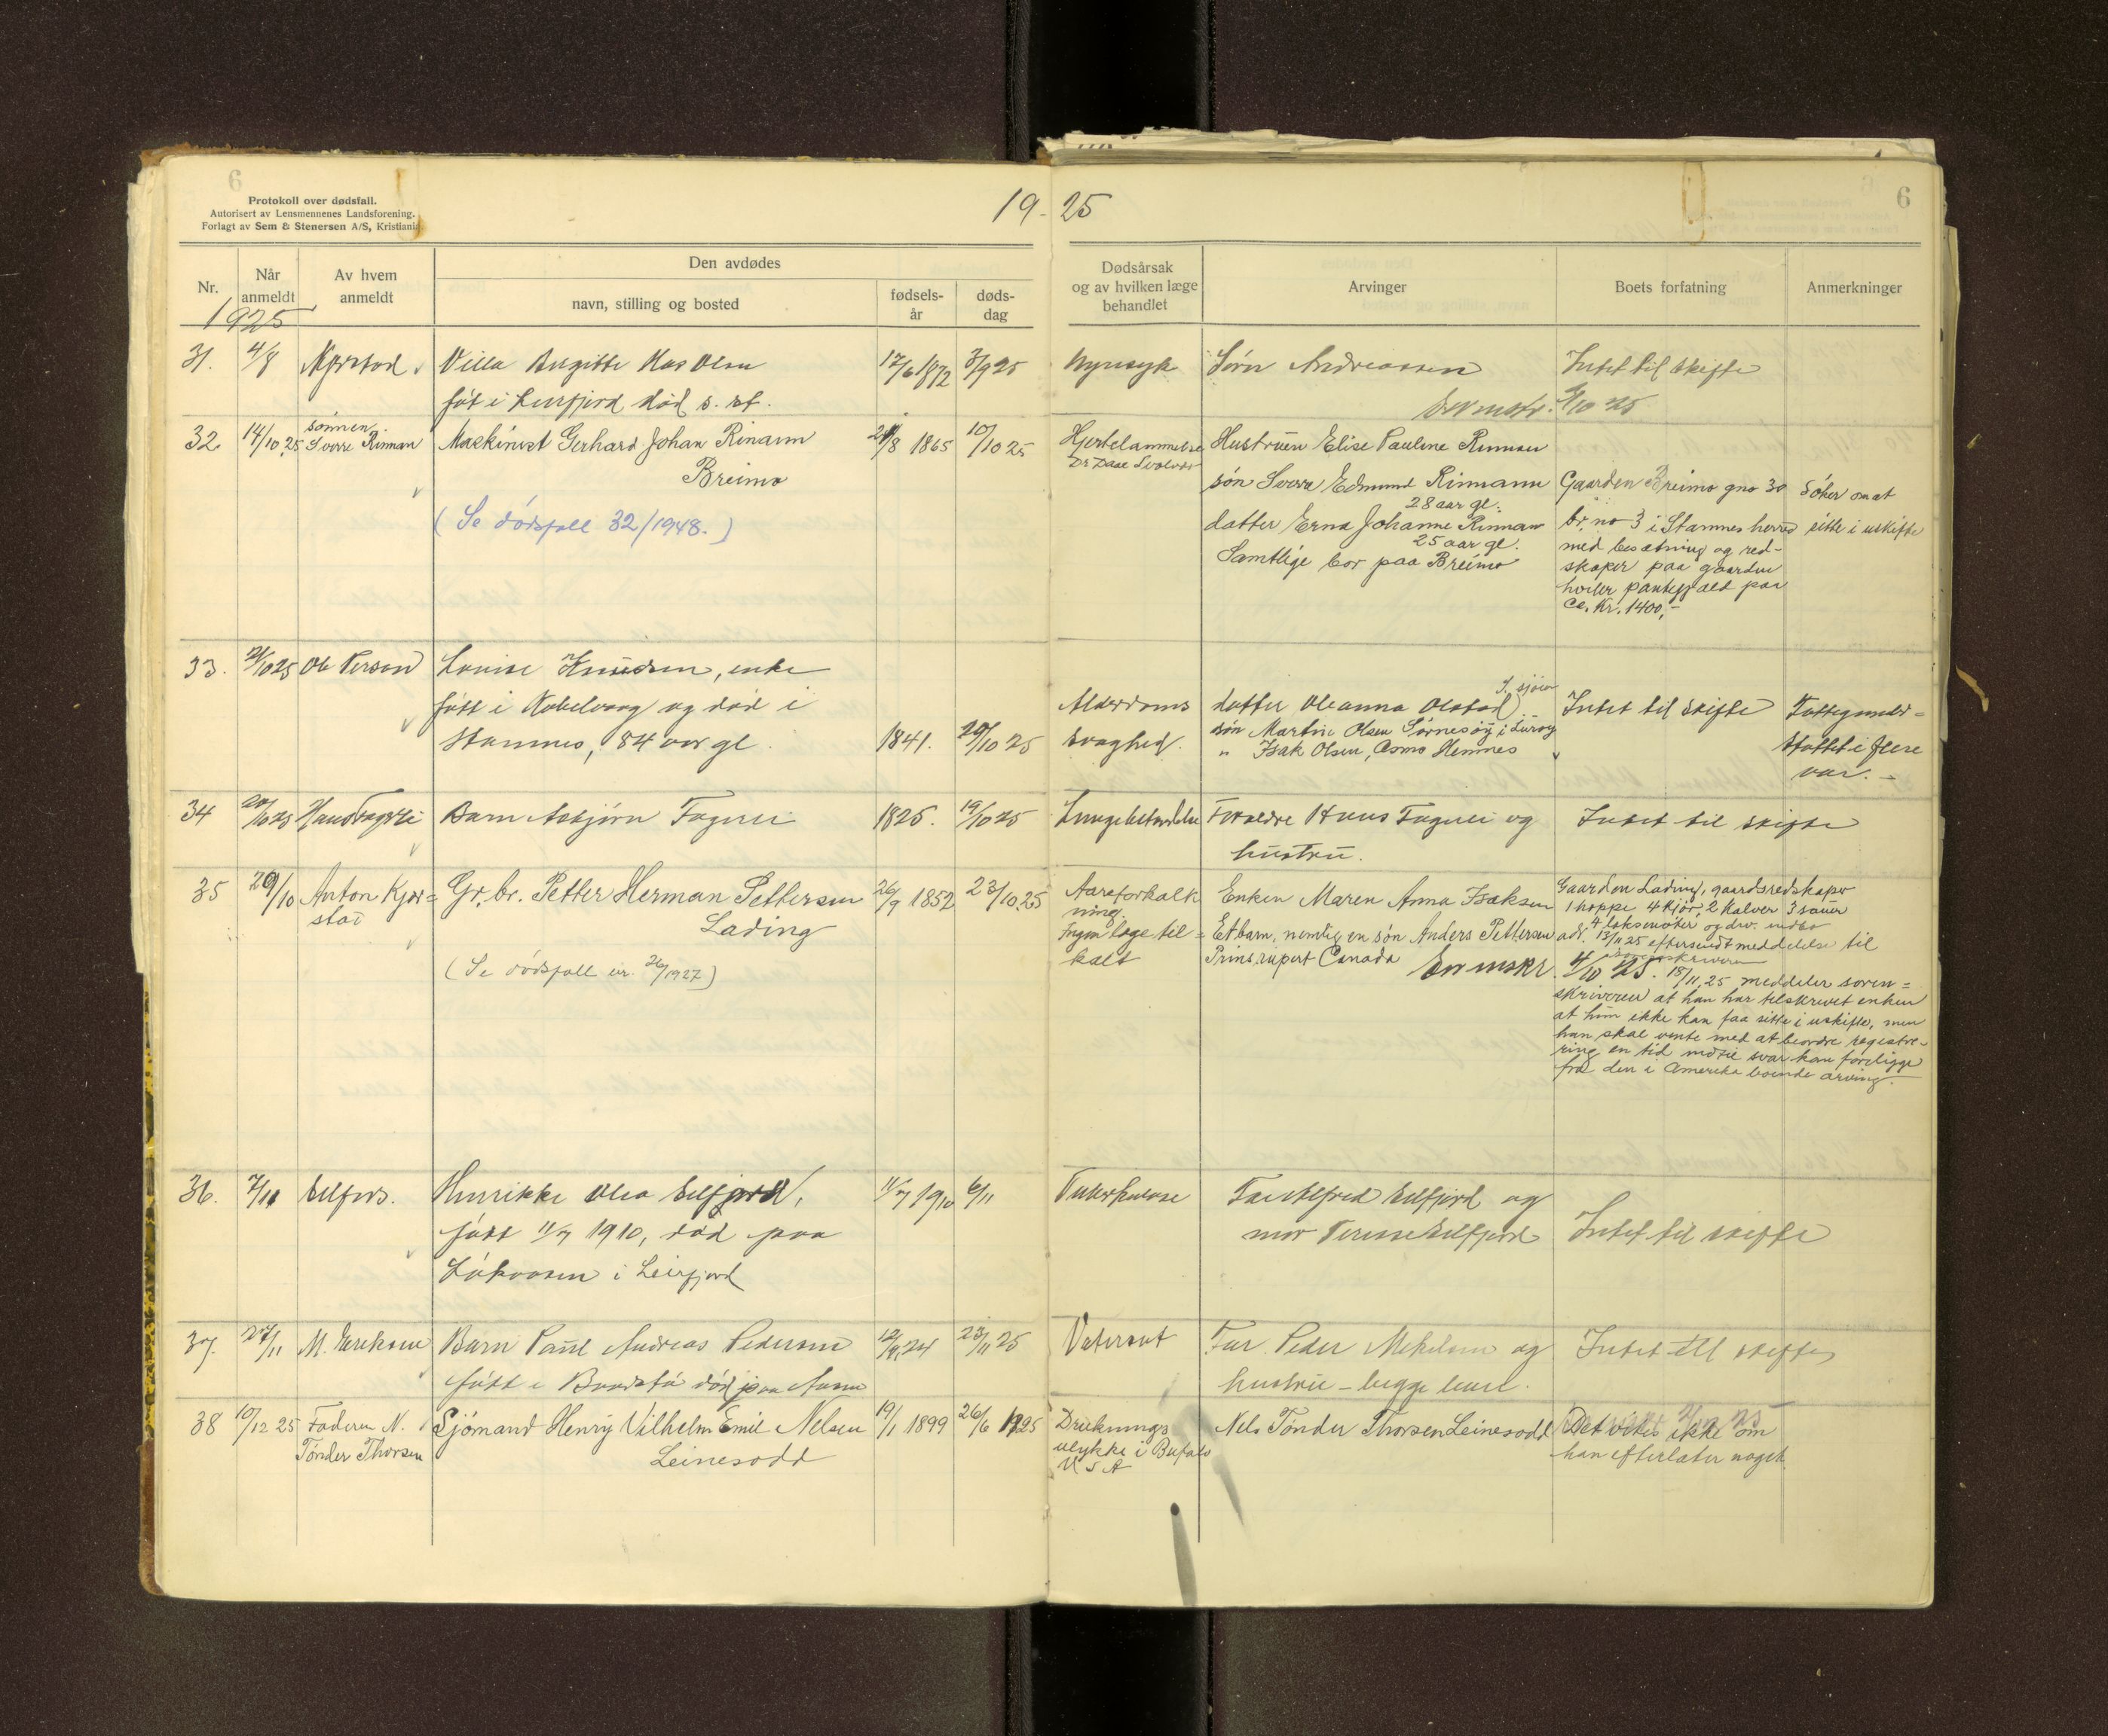 6
Protokoll over dødsfall.
Autorisert av Lensmennenes Landsforening.
Forlagt av Sem & Stenersen A/S, Kristiania.
19-25
6
Nr.
Når anmeldt
Av hvem anmeldt
Den avdødes
navn, stilling og bosted
fødsels-år
døds-dag
Dødsårsak og av hvilken læge behandlet
Arvinger
Boets forfatning
Anmerkninger
1925
31. 4/8
Olsen
17/6 1872 3/9 25
Nyresyk
Sørn Andreassen
Intet til skifte
født i Leirfjord død s. st.
4/10 25
32. 14/10 25 sønnen Sverre Rinman
Maskinist Gerhard Johan Rinann
Breimo
(Se dødsfall 32/1948.)
/8 1865 10/10 25
Hjertelammelse
Dr Daae
Hustruen Elise Pauline Rinman
søn Sverre Edmund Rinmann
28 aar gl.
datter Erna Johanne Rinman
25 aar gl.
Samtlige bor paa Breimo
Gaarden Breimo gno 30
br. no 3 i Stamnes herred
med besætning og red-
skaper paa gaarden
hviler pantegjæld paa
ca. Kr. 1400,-
Søker om at
sitte i uskifte
33. 21/10 25 Ole Person
Lovise Knudsen, enke
født i og død i
Stamnes, 84 aar gl.
1841. 20/10 25
Alderdoms
svaghed.
datter Oleanna Olstad
søn Martin Olsen Sørnesøy i Lurøy
" Isak Olsen, Asmo Hemnes
Intet til skifte
støttet i flere
aar.-
34 20/10 25 Hans Fagerli
Barn Asbjørn Fagerli
1825. 19/10 25
Lungebetændelse
Foreldre Hans Fagerli og
hustru.
Intet til skifte
35 29/10 Anton Kjær=
stad
Gr. br. Petter Herman Pettersen
Lading
(Se dødsfall nr. 26/1927)
26/9 1852 23/10 25
Aareforkalk
ning.
Ingen læge til=
kalt
Enken Maren Anna Isaksen
Et barn, nemlig en søn Anders Pettersen adr.
Prins rupert Canada
Gaarden Lading, gaardsredskaper
1 hoppe 4 kjør, 2 kalver 3 sauer
4 laksenøter og div. indbo
13/11 25 eftersendt meddelelse til
sorenskriveren
4/10 25. 18/11 25 meddeler soren=
skriveren at han har tilskrevet enken
at hun ikke kan faa sitte i uskifte, men
han skal vente med at beordre registre-
ring en tid indtil svar kan foreligge
fra den i Amerika boende arving.
36. 7/11 Elfjord.
Henrikke Olea Elfjord,
født 11/7 1910, død paa
i Leirfjord
11/7 1910 6/11
Tuberkulose
Far Alfred Elfjord og
mor Terese Elfjord
Intet til skifte
37. 27/11 M. Eriksen
Barn Paul Andreas Pedersen
født i død paa
24 23/11 25
Vatersot
Far. Peder Mikelsen og
hustru - begge
Intet til skifte
38 10/12 25 Faderen N.
Tønder Thorsen
Sjømand Henry Vilhelm Emil Nelsen
Leinesodd
19/1 1899 26/6 1925
Druknings
ulykke i Bufalo
U S A
Nels Tønder Thorsen Leinesodd
Det vites ikke om
han efterlater noget.